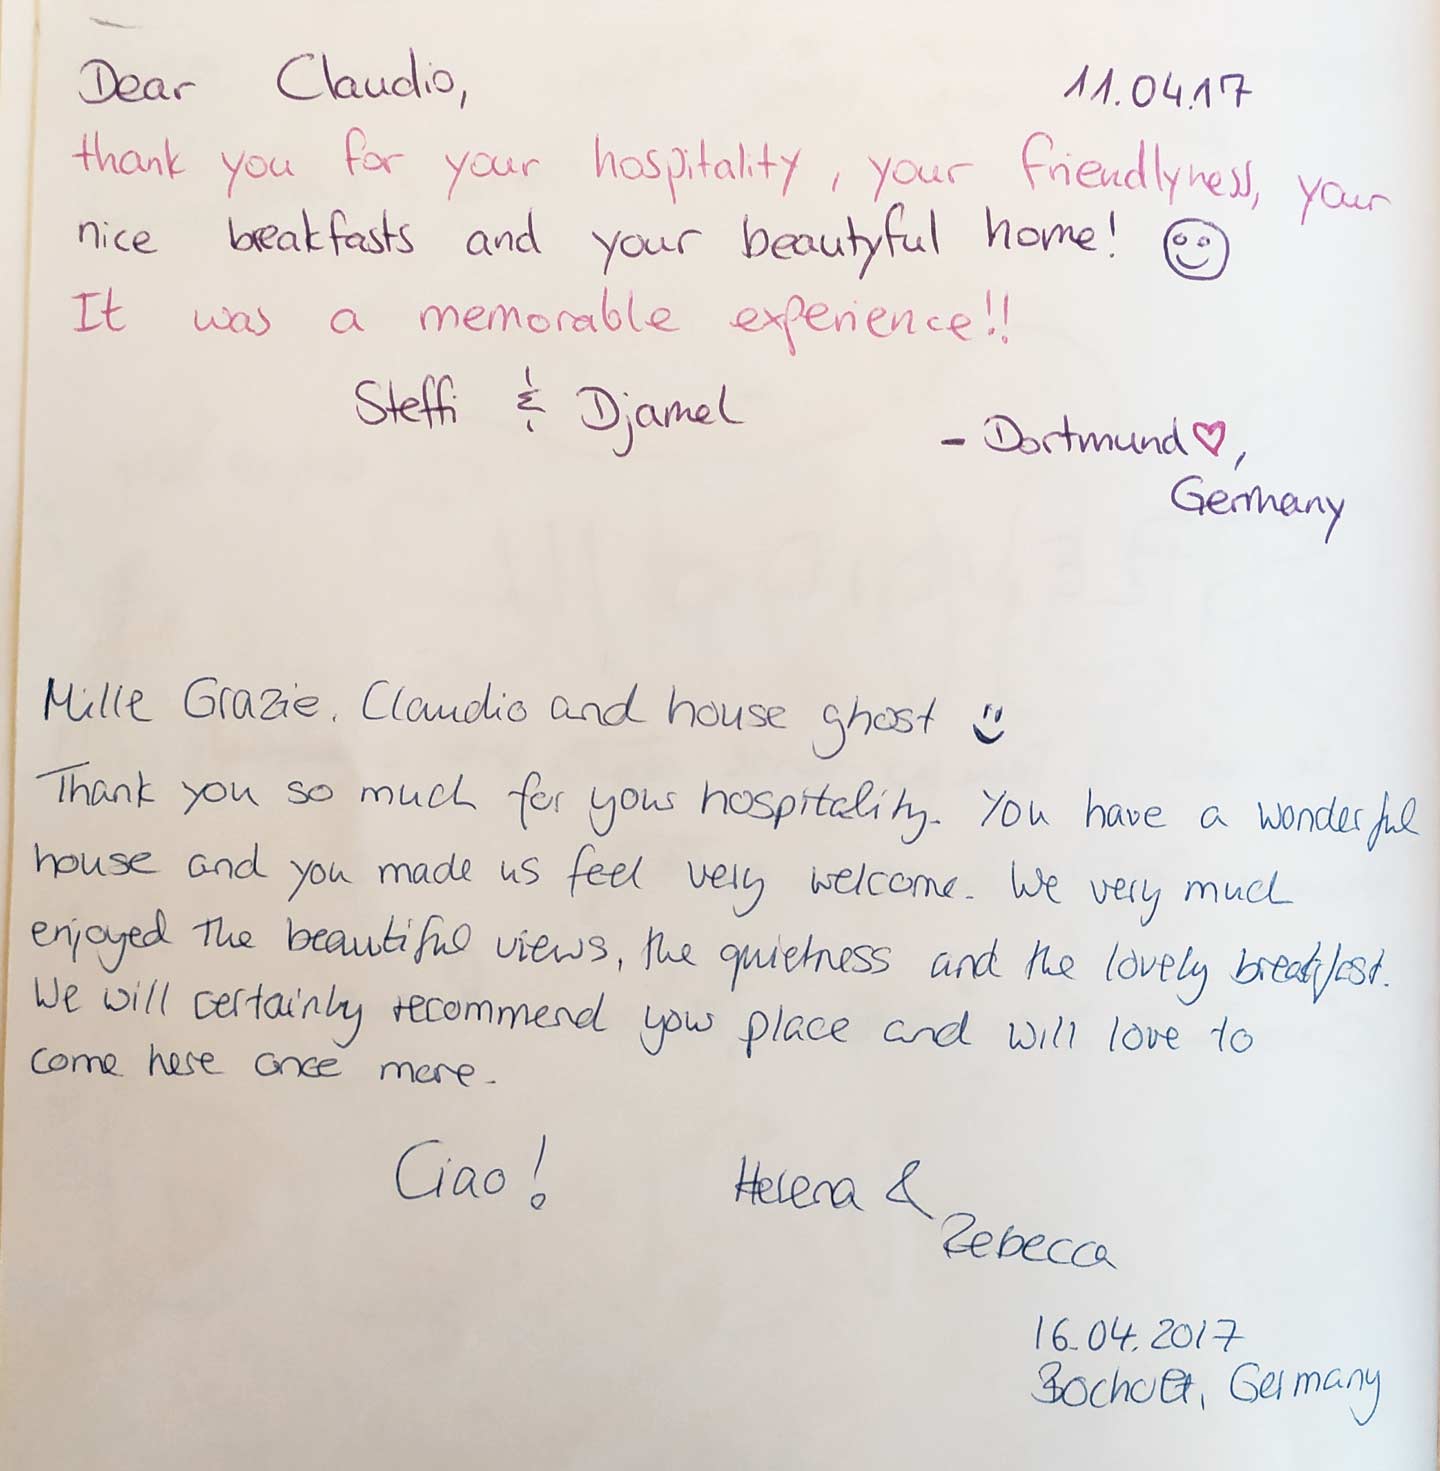 Dear Claudio, 11.04.17
thank you for your hospitality, your friendlyness, your
nice breakfasts and your beautyful home! ☺
It was a memorable experience!!
Steffi & Djamel
- Dortmund ♡,
Germany
Mille Grazie, Claudio and house ghost
Thank you so much for your hospitality. You have a wonderful
house and you made us feel very welcome. We very much
enjoyed the beautiful views, the quietness and the lovely breakfast.
We will certainly recommend your place and will love to
come here once more.
Ciao! Helena &
Rebecca
16.04.2017
Bocholt, Germany